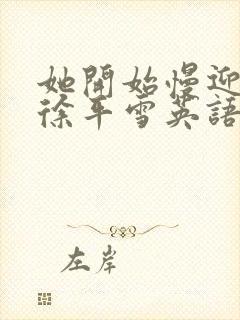 她開始慢迎
徐平雪英語
左岸